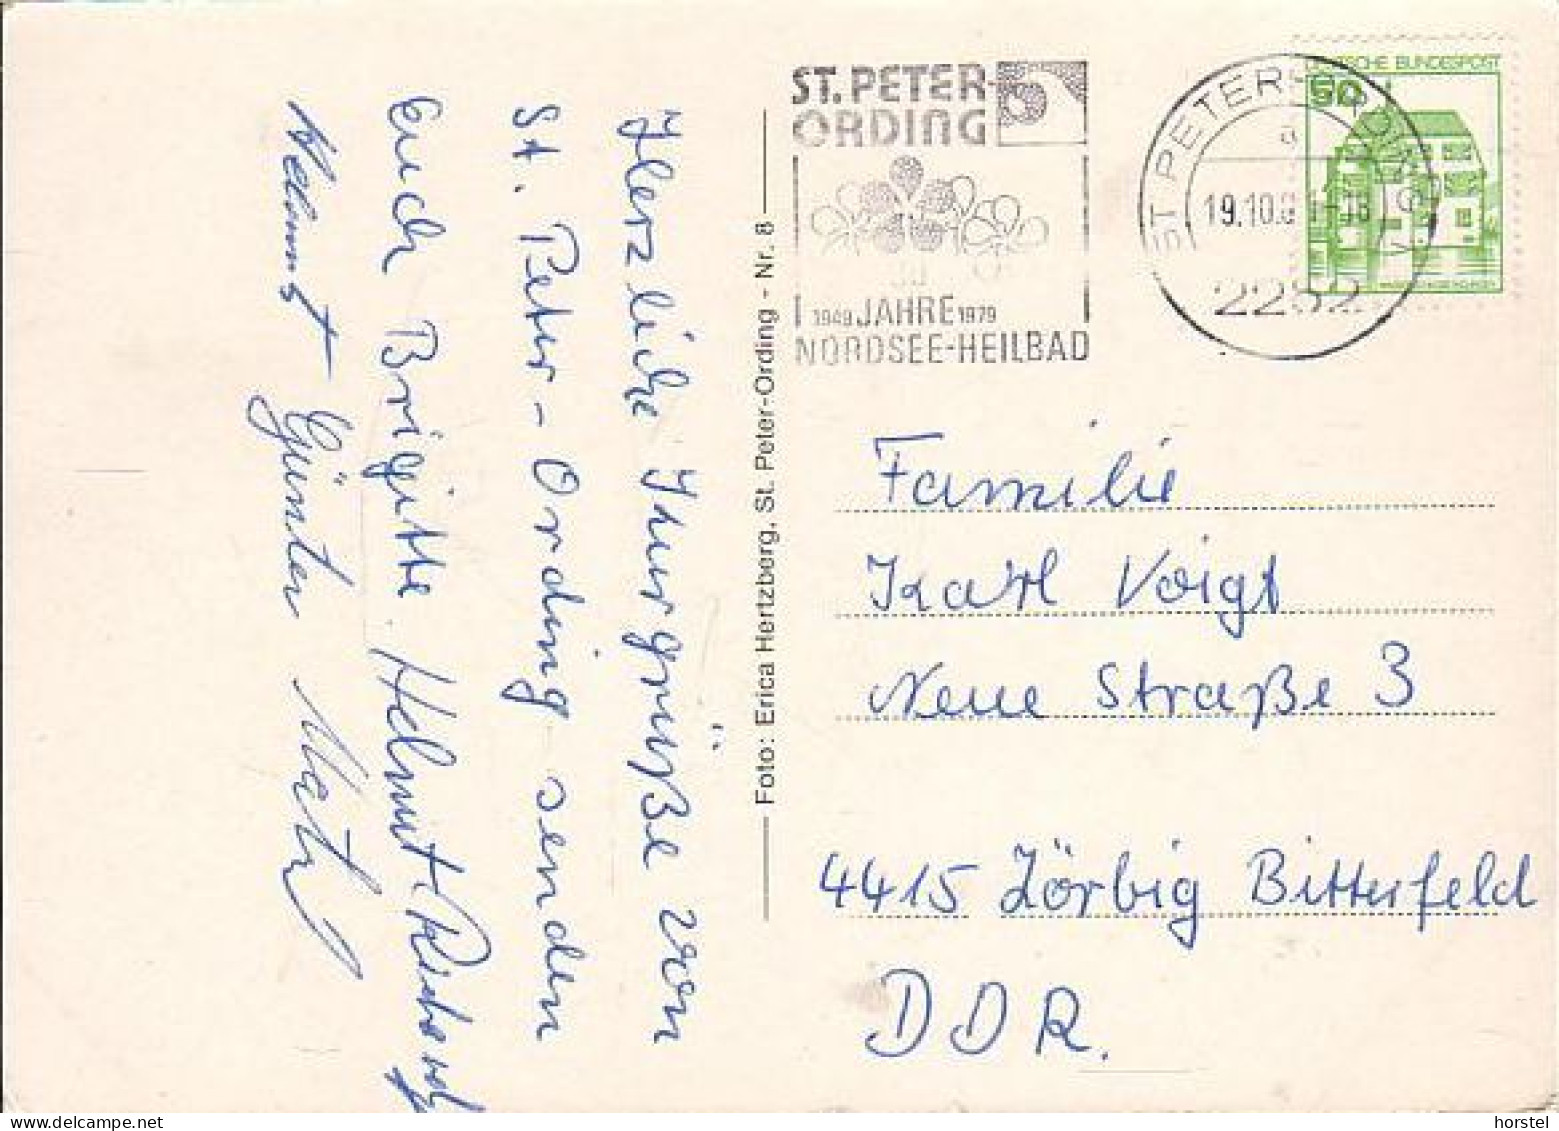 Herzliche Kurgrüße von
St. Peter-Ording senden
Euch Brigitte. Helmut
Helmut Günter
Foto: Erica Hertzberg, St. Peter-Ording - Nr. 8
ST. PETER-
ORDING
30
1949 JAHRE 1979
NORDSEE-HEILBAD
ST PETER-ORDING
a
19.10.8
2252
DEUTSCHE BUNDESPOST
50
Familie
Karl Voigt
Neue Straße 3
4415 Zörbig Bitterfeld
DDR.
horstel